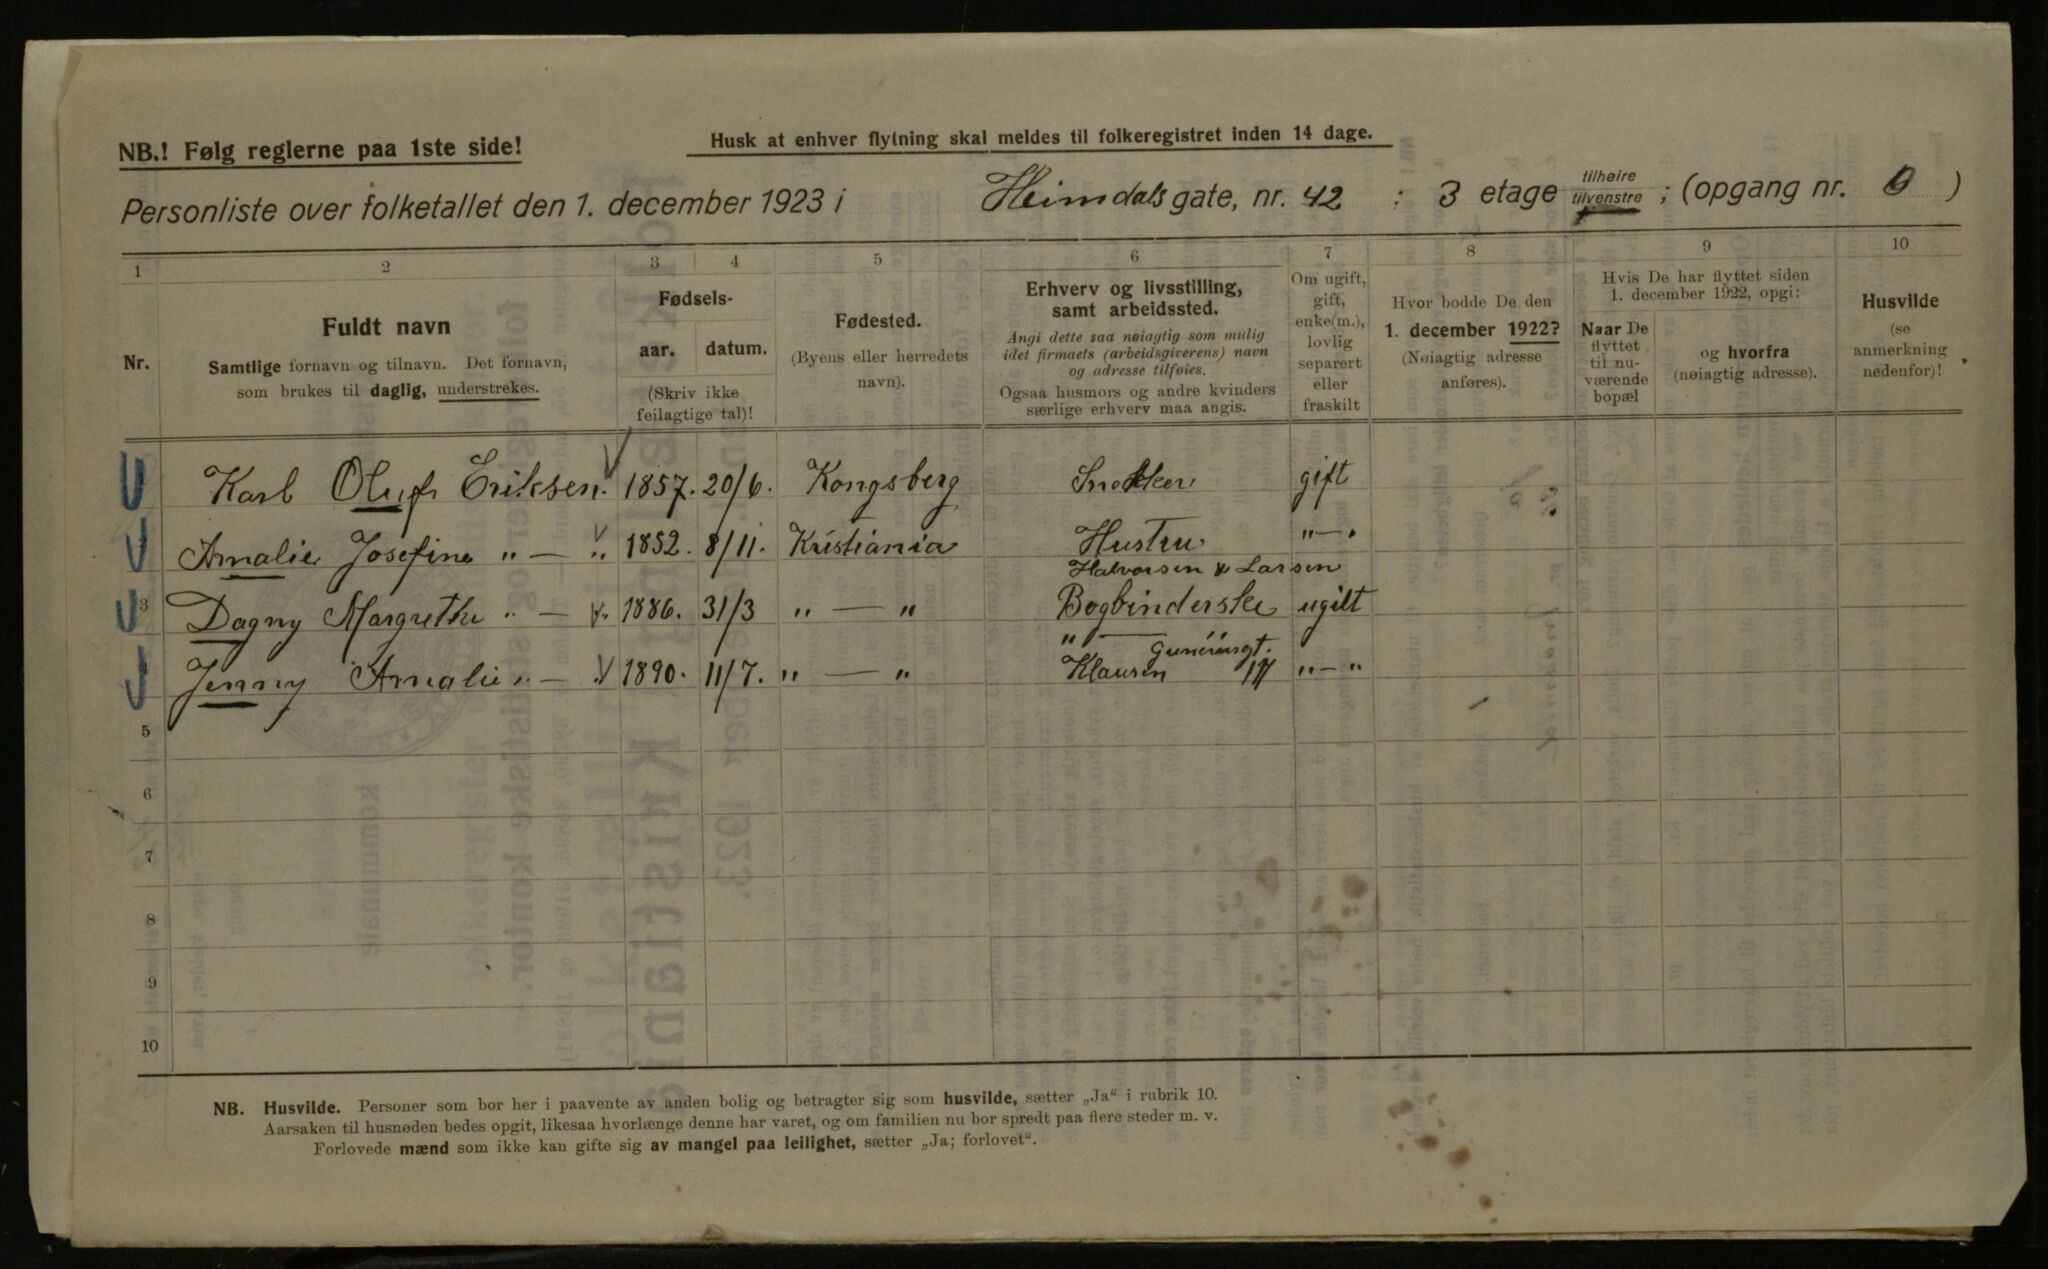 NB.! Følg reglerne paa 1ste side!
Husk at enhver flytning skal meldes til folkeregistret inden 14 dage.
Personliste over folketallet den 1. december 1923 i Heimdals gate, nr. 42 : 3 etage tilhøire tilvenstre ; (opgang nr. )
1 2 3 4 5 6 7 8 9 10
Nr.
Fuldt navn
Samtlige fornavn og tilnavn. Det fornavn,
som brukes til daglig, understrekes.
Fødsels-
aar. datum.
(Skriv ikke
feilagtige tal)!
Fødested.
(Byens eller herredets
navn).
Erhverv og livsstilling,
samt arbeidssted.
Angi dette saa nøiagtig som mulig
idet firmaets (arbeidsgiverens) navn
og adresse tilføies.
Ogsaa husmors og andre kvinders
særlige erhverv maa angis.
Om ugift,
gift,
enke(m.),
lovlig
separert
eller
fraskilt
Hvor bodde De den
1. december 1922?
(Nøiagtig adresse
anføres).
Hvis De har flyttet siden
1. december 1922, opgi:
Naar De
flyttet
til nu-
værende
bopæl
og hvorfra
(nøiagtig adresse).
Husvilde
(se
anmerkning
nedenfor)!
Karl Oluf Eriksen. 1857. 20/6. Kongsberg Snekker gift
Amalie Josefine „ — „ 1852. 8/11. Kristiania Hustru „ — „
Halvorsen & Larsen
3 Dagny Margrethe „ — „ 1886. 31/3 „ — „ Bogbinderske ugift
„ —
Jenny Amalie „ — „ 1890. 11/7. „ — „ Klausen „ — „
5
6
7
8
9
10
NB. Husvilde. Personer som bor her i paavente av anden bolig og betragter sig som husvilde, sætter „Ja“ i rubrik 10.
Aarsaken til husnøden bedes opgit, likesaa hvorlænge denne har varet, og om familien nu bor spredt paa flere steder m. v.
Forlovede mænd som ikke kan gifte sig av mangel paa leilighet, sætter „Ja; forlovet“.